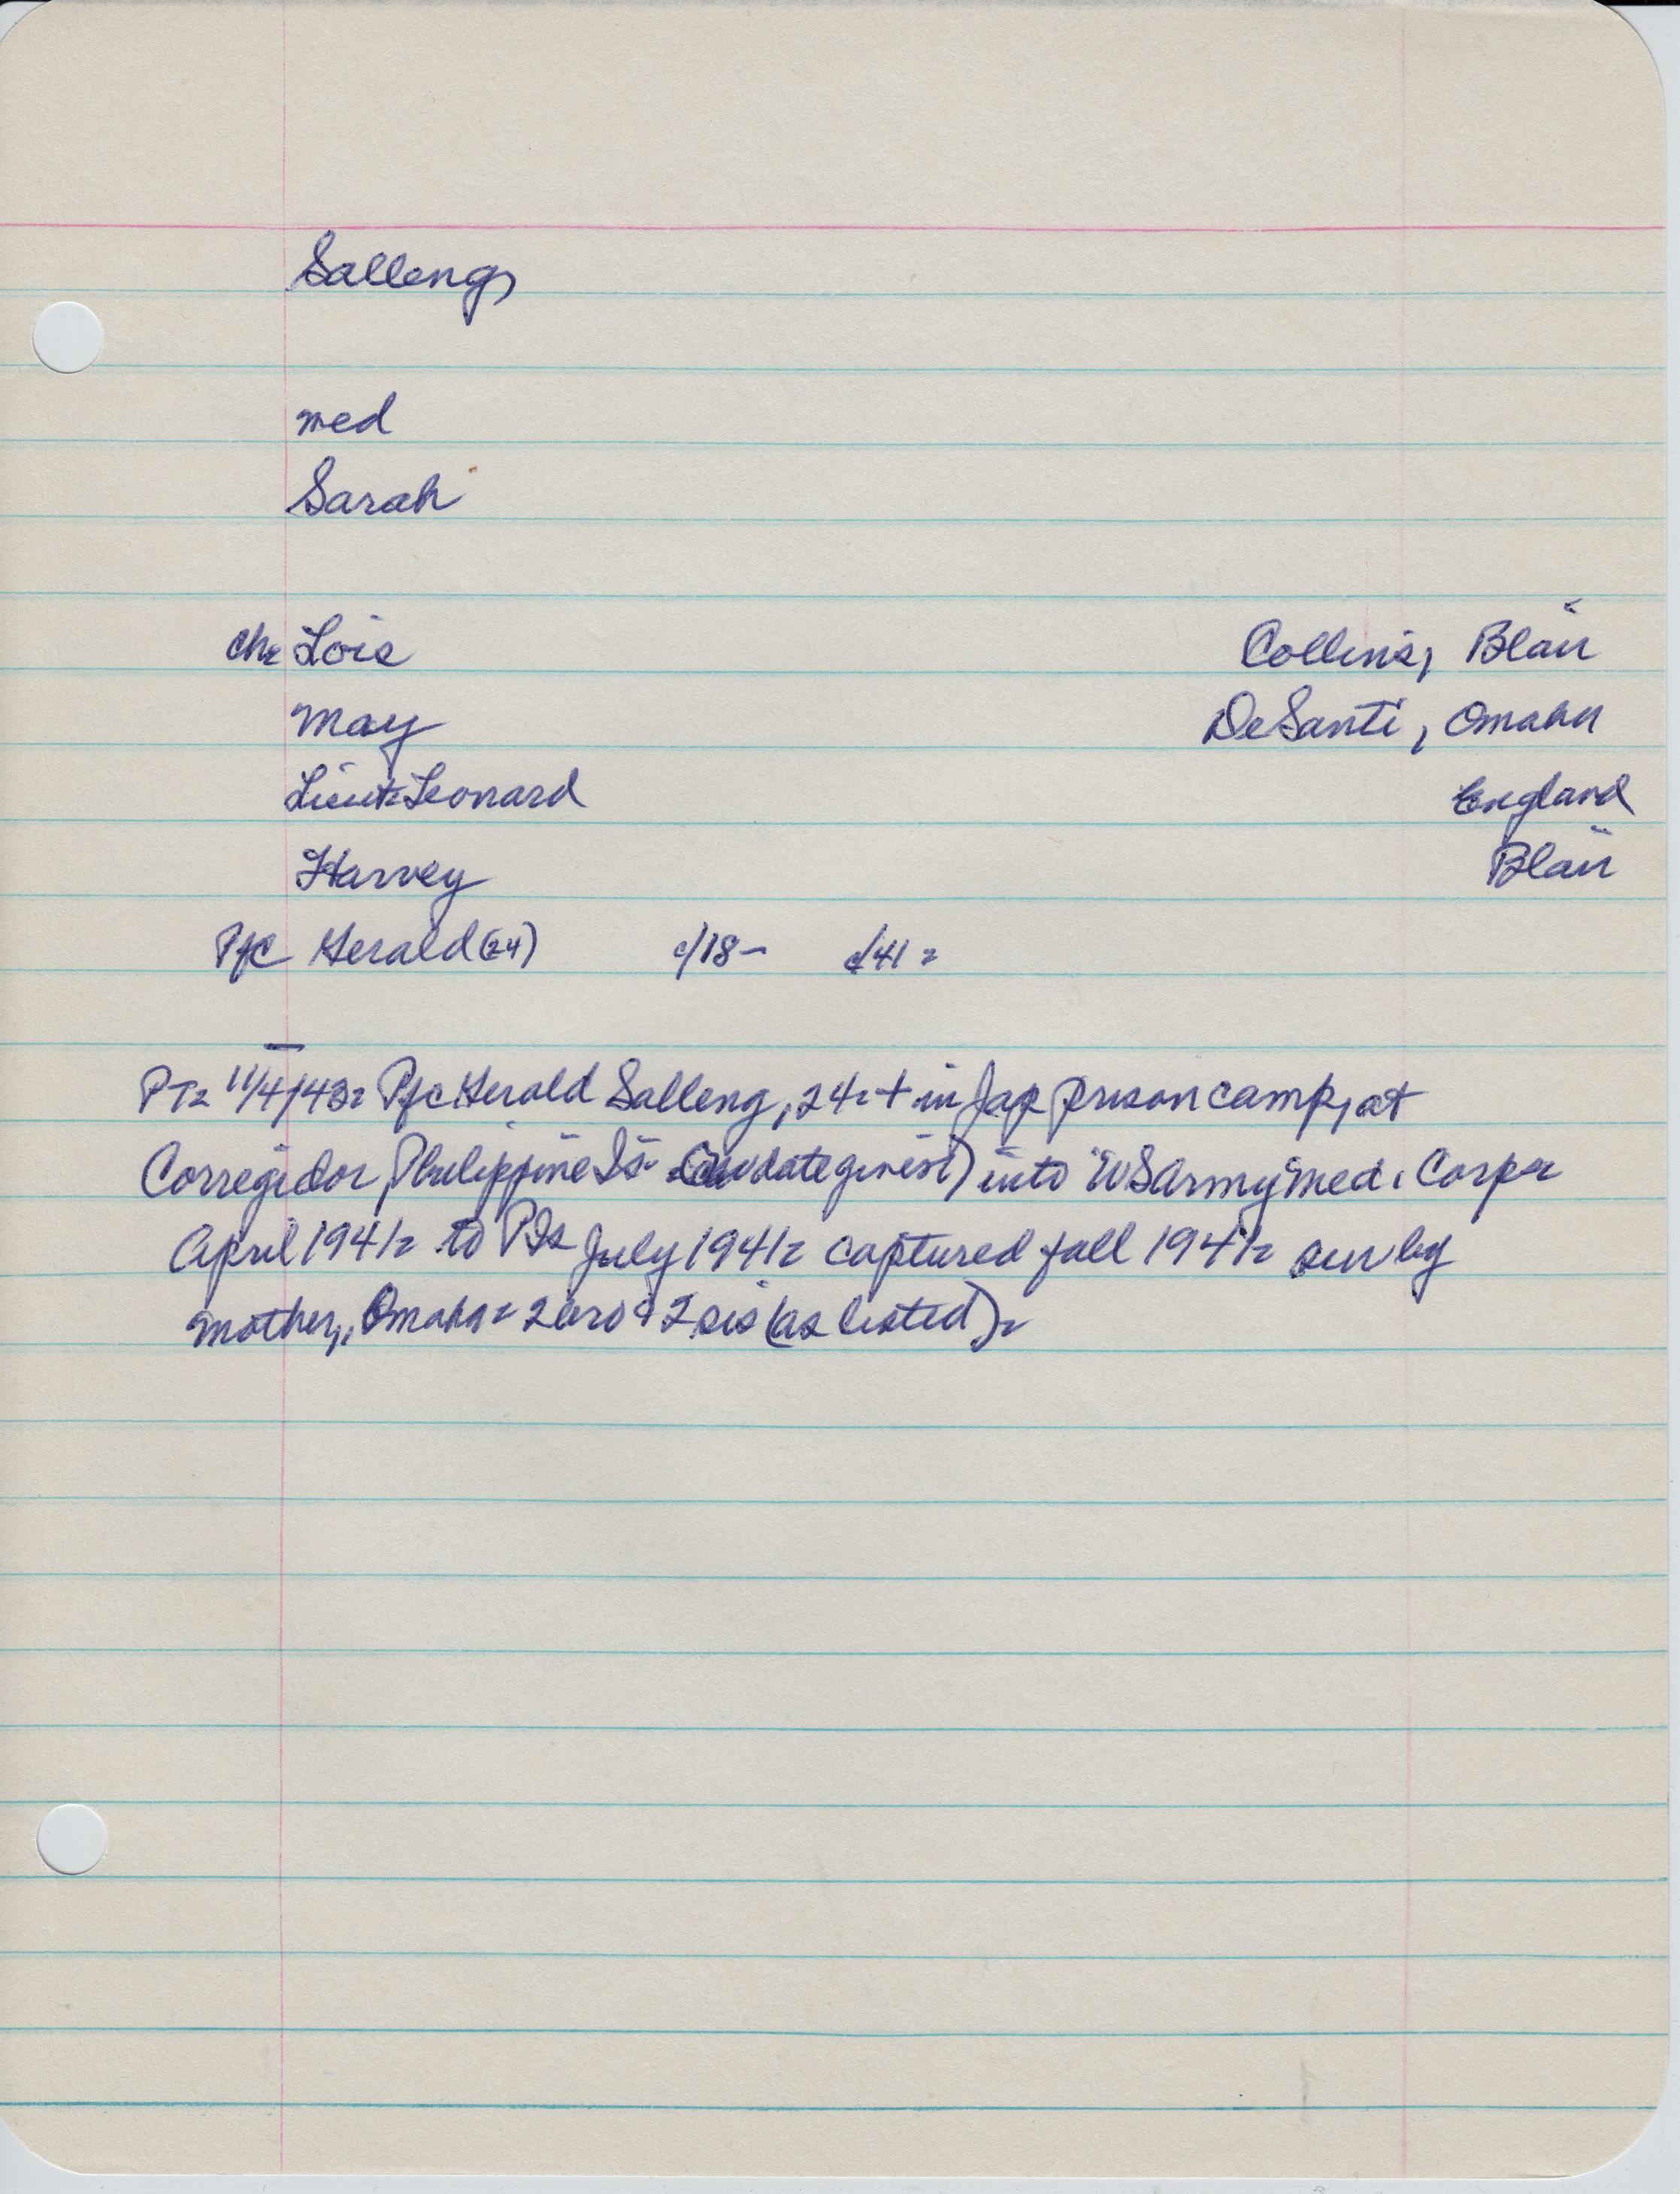 Salleng,
med
Sarah
ch= Lois Collins, Blair
May DeSanti, Omaha
Lieut= Leonard England
Harvey Blair
Pfc Herald (24) c/18- d/41=
PT= 11/4/43= Pfc Herald Salleng, 24= + in Jap prison camp, at
Corregidor, Philippine Is= date given) into US Army Med. Corps=
April 1941= to PIs July 1941= captured fall 1941= sur by
mother, Omaha= 2 bro & 2 sis (as listed)=